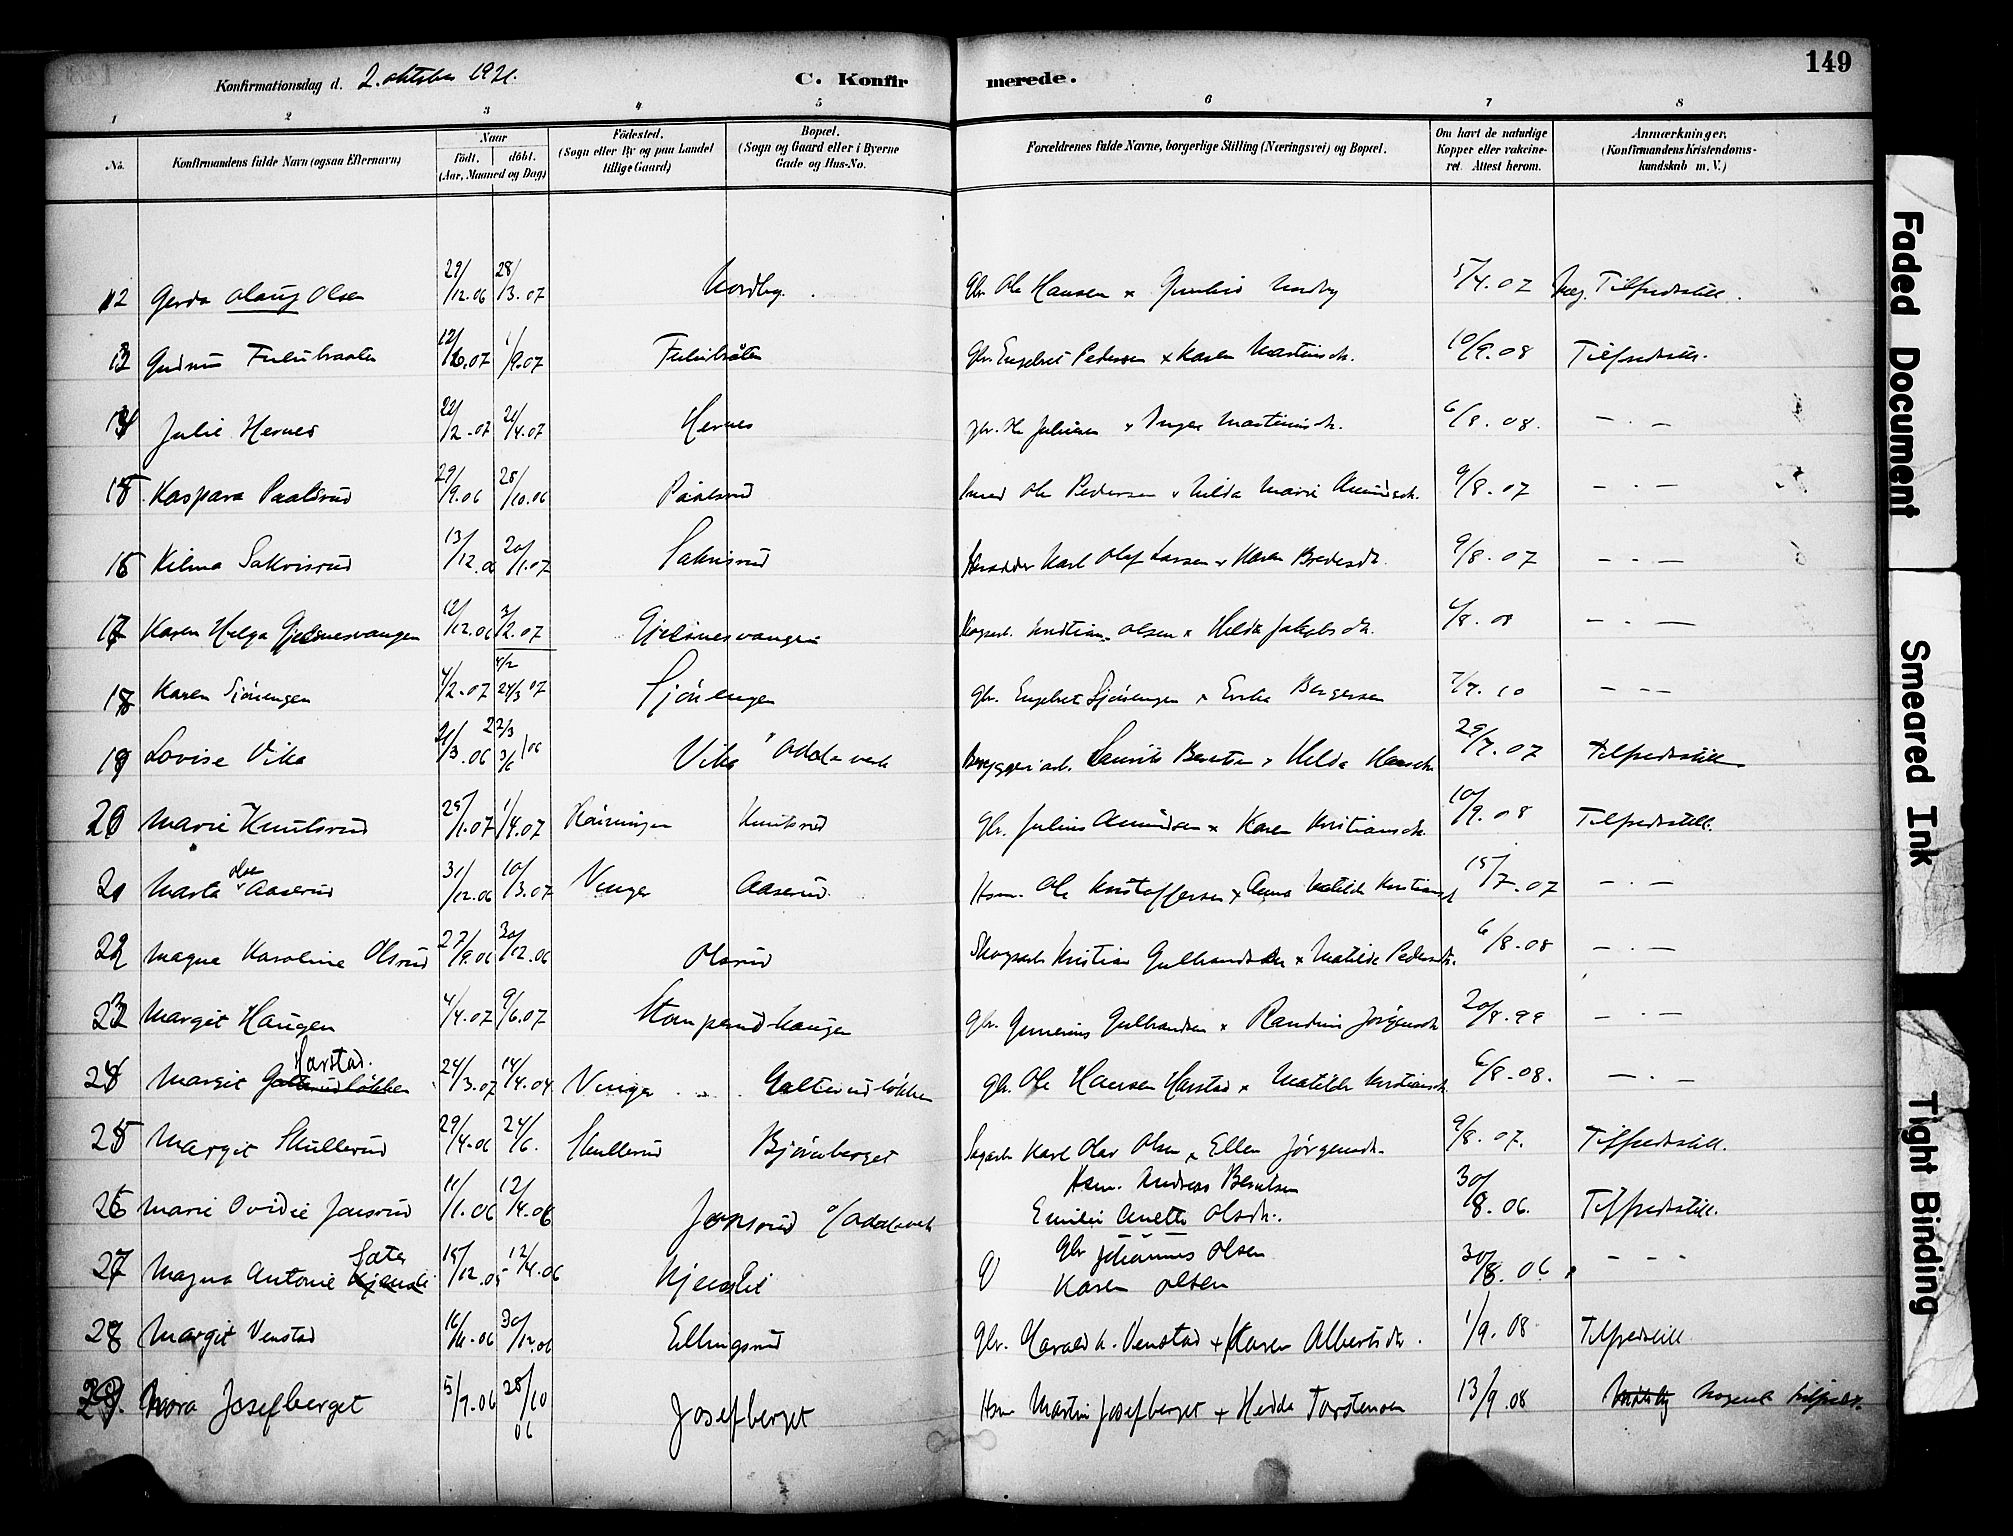 149
Konfirmationsdag d. 2. oktober 1921.
C. Konfirmerede.
1 2 3 4 5 6 7 8
No.
Konfirmandens fulde Navn (ogsaa Efternavn)
Naar
født. døbt.
(Aar, Maaned og Dag)
Fødested.
(Sogn eller By og paa Landet
tillige Gaard)
Bopæl.
(Sogn og Gaard eller i Byerne
Gade og Hus-No.
Forældrenes fulde Navne, borgerlige Stilling (Næringsvei) og Bopæl.
Om havt de naturlige
Kopper eller vakcine-
ret. Attest herom.
Anmærkninger,
(Konfirmandens Kristendoms-
kundskab m. V.)
12 Gerda Olaug Olsen 29/12.06 28/3.07 Nordby. Gbr. Ole Hansen x Nordby 5/4.07 Meg. Tilfredsstill.
13 Gudrun 12/6.07 1/9.07 Gbr. Engebret Pedersen x Karen Martinsdt. 10/9.08 Tilfredsstill.
14 Julie Hernes 22/2.07 21/4.07 Hernes Gbr. Ole Juliusen x Inger Martinusdt. 6/8.08. — . —
15 Kaspara Paalsrud 29/9.06 28/10.06 Paalsrud Smed Ole Pedersen x Hilda Marie Amundsdt. 9/8.07 — . —
16 Kilma Sakrisrud 13/12.06 20/1.07 Sakrisrud Karl Olaf Larsen x Karen Bredesdt. 9/8.07 — . —
17 Karen Helga Gjelsnesvangen 12/12.06 3/2.07 Gjelsnesvangen Skogarb. Kristian Olsen x Helda Jakobsdt. 6/8.08 — . —
18 Karen Sjöiengen 4/2.07 4/2 24/3 07 Sjöiengen Gbr. Engebret Sjöiengen x Bergersen 7/7.10 — - —
19 Lovise Vika 21/3.06 22/3 3/6 06 Vika % Odals verk Bryggeriarb. Laurits Berntsen x Helda Hansdt. 29/7.07 Tilfredsstill.
20 Marie Knutsrud 25/1.07 1/4.07 Knutsrud Gbr. Julius Amundsen x Karen Kristiansdt. 10/9.08 Tilfredsstill.
21 Marta Olsen Aaserud 31/12.06 10/3.07 Vinger Aaserud. Hsm. Ole Kristoffersen x Anna Matilde Kristiansd. 15/7.07 — . —
22 Magna Karoline Olsrud 27/9.06 30/12.06 Olsrud Skogsarb. Kristian Gulbrandsen x Matilde Pedersdt. 6/8.08 — . —
23 Margit Haugen 4/4.07 9/6.07 Stomperudhaugen Gbr. Gunerius Gulbrandsen x Randine Jörgensdt. 20/8.99 — . —
24 Margit Galterudløkken Harstad. 24/3.07 14/4.07 Vinger Galterudløkken Gbr. Ole Hansen Harstad x Matilde Kristiansdt. 6/8.08. — . —
25 Margit Skullerud 29/4.06 24/6. Skullerud Björnberget Sagarb. Karl Olav Olsen x Ellen Jørgensdt. 9/8.07. Tilfredsstill.
26 Marie Ovidie Jonsrud 11/1.06 12/4.06 Jonsrud %Odalsverk Hsm. Andreas Berntsen
Emilie Anette Olsdt. 30/8.06. Tilfredsstill.
27 Magna Antonie Kjensli Sæter 15/12.05 12/4.06 Kjensli Gbr Johannes Olsen
Karen Olsen 30/8.06. - - -
28 Margit Venstad 16/11.06 30/12.06 Ellingsrud Gbr. Harald H. Venstad + Karen Albertsdt. 1/9.08 Tilfredsstill
29. Nora Josefberget 5/7.06 28/10 06 Josefberget Hsm Martin Josefberget + Hedda Torstensen 13/9.08 Nogenl. tilfreds.
Faded Document
Smeared Ink
Tight Binding